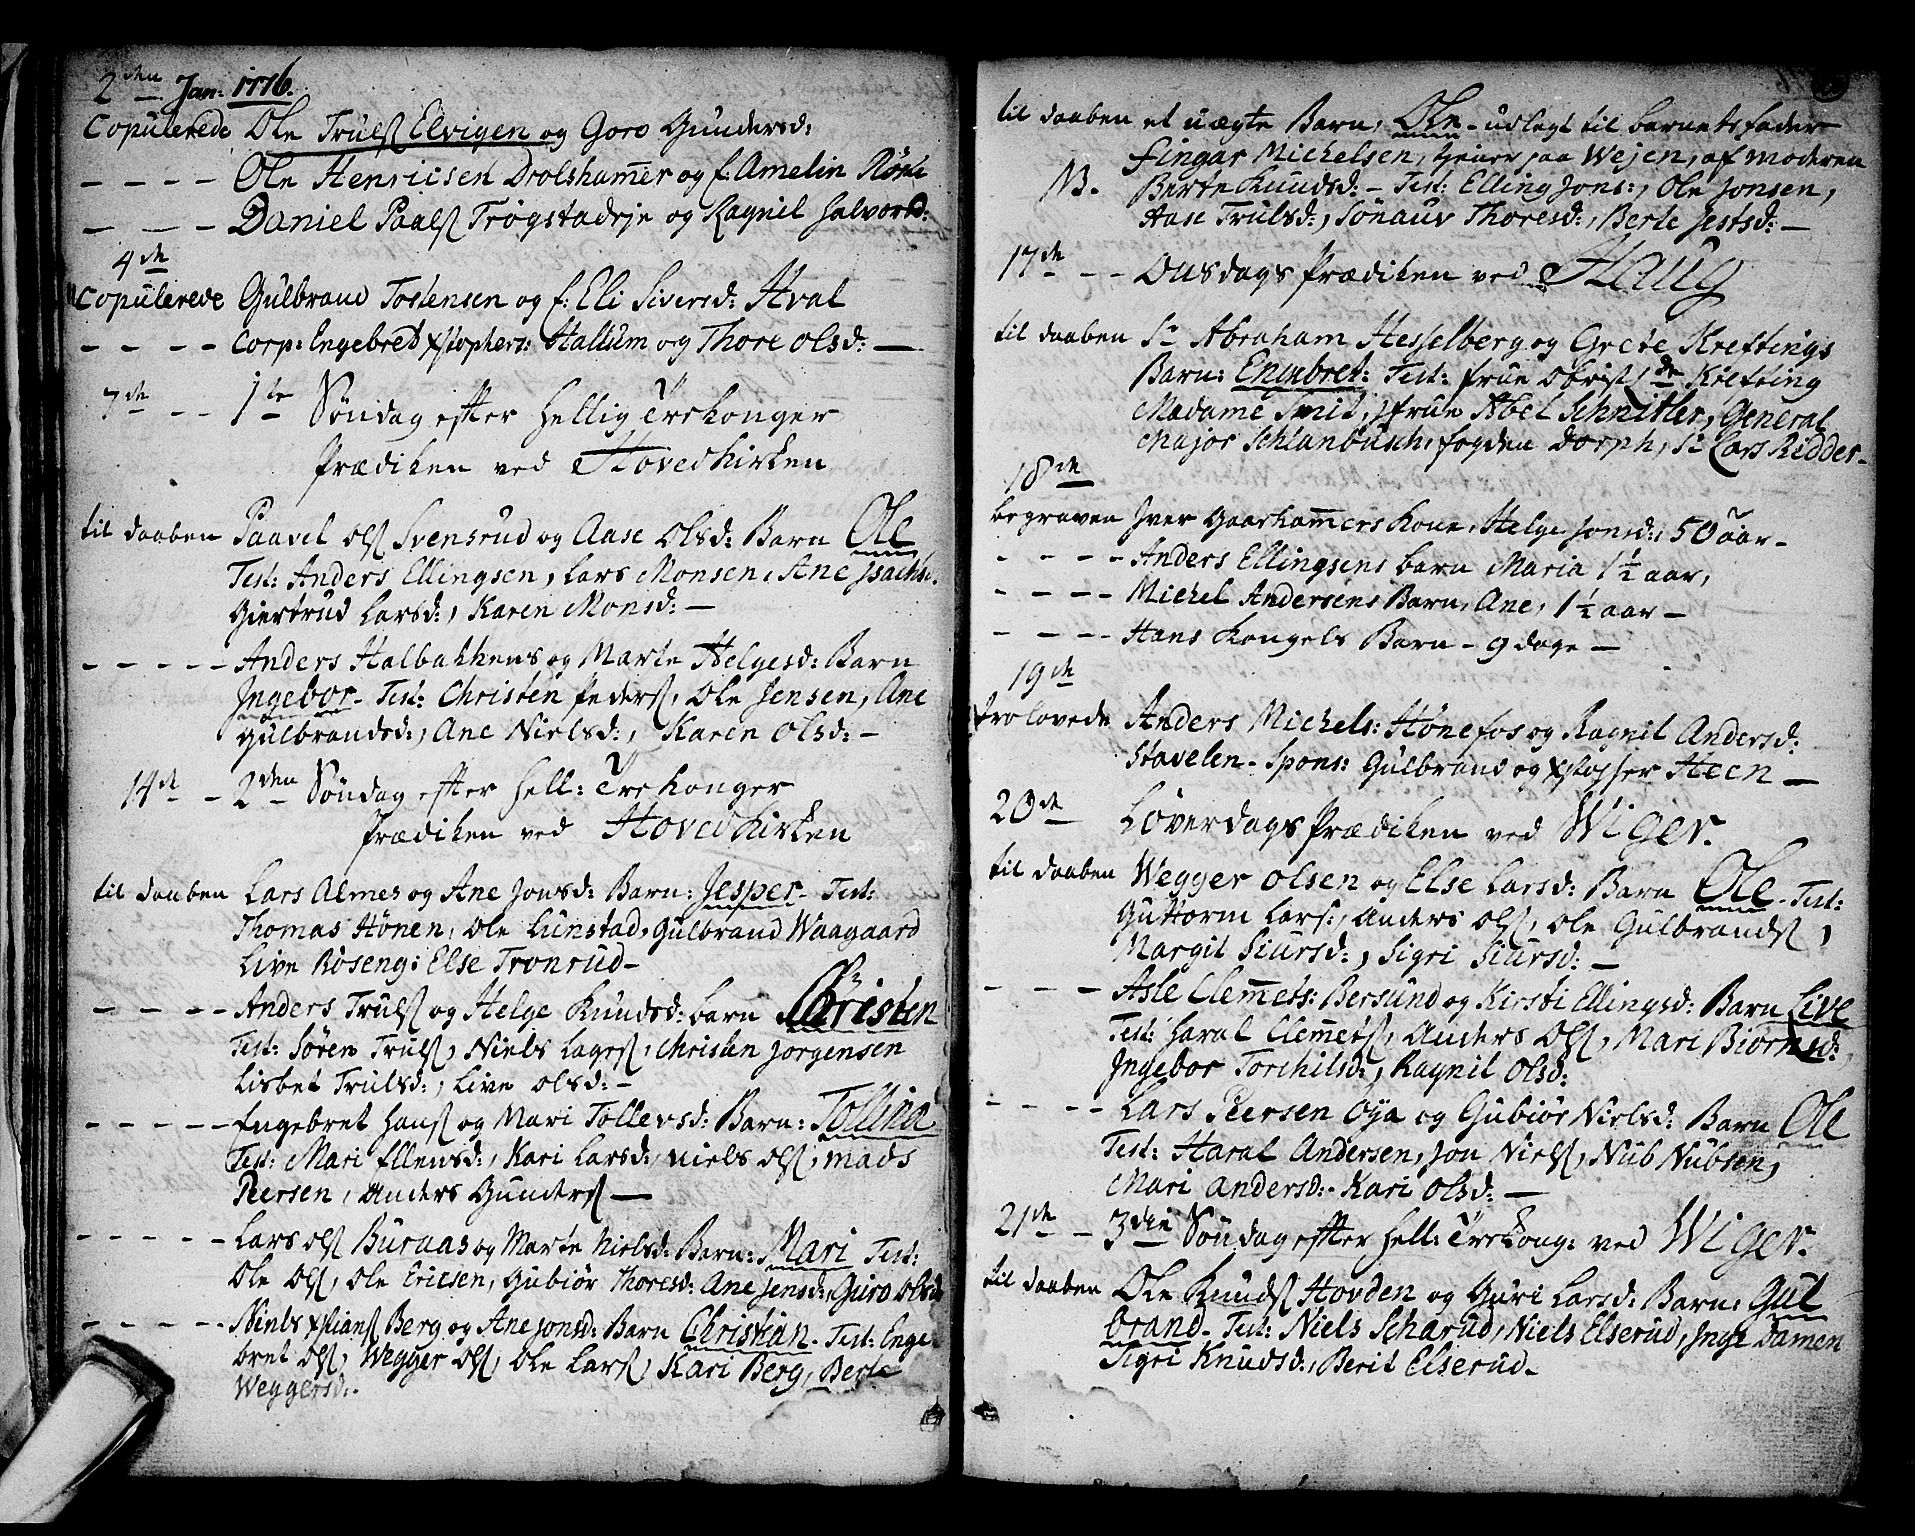 2den Jan: 1776.
Copulerede Ole Truls Elvigen og Goro Gundersd:
- - - - Ole Henricsen Drolshammer og f. Amelin
- - - Daniel Paals Trøgstadeje og Ragnil Halvorsd:
4de
Copulerede Gulbrand Tostensen og f: Eli Siversd: Hval
- - - - Corp: Engebred Xstophers: Hallum og Thore Olsd: -
7de - - 1te Søndag efter Hellig Trekonger
Prædiken ved Hovedkirken
til daaben Paavel Ols Svensrud og Aase Olsd: Barn Ole
Test: Anders Ellingsen, Lars Monsen, Ane Isachs:
Giertrud Larsd:, Karen Monsd: -
- - - - - Anders Halbakkens og Marte Helgesd: Barn
Ingebor - Test: Christen Peders, Ole Jensen, Ane
Gulbrandsd:, Ane Nielsd:, Karen Olsd: -
14de - 2den Søndag efter Hell: Trekonger
Prædiken ved Hovedkirken
til daaben Lars Almes og Ane Jonsd: Barn: Jesper - Test:
Thomas Hønen, Ole Lunstad, Gulbrand Waagaard
Live Røseng: Else Tronrud -
- - - - Anders Truls og Helge Knudsd: barn Christen
Test: Søren Truls, Niels Lages, Christen Jorgensen
Lisbet Trulsd:, Live Olsd: -
- - - - - Engebret Hans og Mari Tollevsd: Barn: Tollina
Test: Mari Ellensd:, Kari Larsd:, Niels Ols, Mads
Peersen, Anders Gunders -
- - - - - Lars Ols Buraas og Marte Nielsd: Barn: Mari Test:
Ole Ols, Ole Ericsen, Gubiør Thoresd: Ane Jensd:, Guro Olsd
- - - - - Niels Xstians Berg og Ane Jonsd: Barn Christian - Test: Enge
bret Ols, Wegger Ols, Ole Lars, Kari Berg, Berte
Weggersd: -
til daaben et uægte Barn, Ole - udlagt til barnets fader
Fingar Michelsen, paa Wejen, af moderen
NB. Berte Knudsd: - Test: Elling Jons:, Ole Jonsen,
Aase Trulsd:, Sønauv Thoresd:, Berte Jestsd: -
17de - - Onsdags Prædiken ved Haug
til daaben Sr Abraham Hesselberg og Grete Kreftings
Barn: Engebret: Test: Frue Obrist Krefting
Madame Smit, Jfrue Abel Schnitler, General
Major Schlanbusch, fogden Dorph, Sr Lars Ridder -
18de
begraven Iver Gaarhammers Kone, Helge Jonsd:, 50 aar -
- - - - Anders Ellingsens barn Maria 1 1/2 aar,
- - - - Michel Andersens Barn, Ane, 1 1/2 aar -
- - - - Hans Kongels Barn - 9 dage -
19de
trolovede Anders Michels: Hønefos og Ragnil Andersd:
Stavelen - Spons: Gulbrand og Xstoffer Heen -
20de Løverdags Prædiken ved Wiger.
til daaben Wegger Olsen og Else Larsd: Barn Ole - Test:
Guttorm Lars:, Anders Ols, Ole Gulbrands,
Margit Siursd:, Sigri Siursd: -
- - - - Asle Clemets: Bersund og Kirsti Ellingsd: Barn Live
Test: Haral Clemets, Anders Ols, Mari Biørnsd:,
Ingebor Torchilsd:, Ragnil Olsd:
- - - - Lars Peersen Oya og Gubiør Nielsd: Barn Ole
Test: Haral Andersen, Jon Niels, Nub Nubsen,
Mari Andersd: - Kari Olsd: -
21de - 3die Søndag efter Hell: Trekong: ved Wiger.
til daaben Ole Knuds Hovden og Guri Larsd: Barn: Gul
brand - Test: Niels Scharud, Niels Elserud, Inge Damen
Sigri Knudsd:, Berit Elserud -